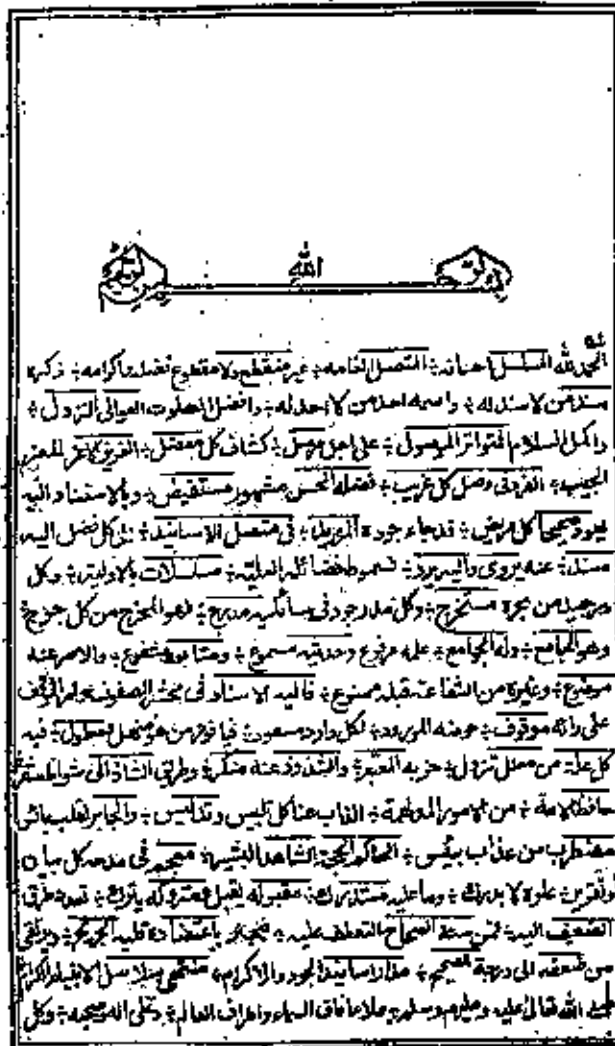 الله
الحمد لله المسلسل احسانه ÷ المتصل انعامه ÷ غير منقطع ولا مقطوع فضله واكرامه ÷ ذكره
سند من لا سند له ÷ واسمه احد من لا احد له ÷ وافضل الصلوت العوالى النزول ÷
واكمل السلام المتواتر الموصول ÷ على اجل مرسل ÷ كشاف كل معضل ÷ العزيز الاعز المعز
الحبيب ÷ الفرد فى وصل كل غريب ÷ فضله الحسن مشهور مستفيض ÷ وبالاستناد اليه
يعود صحيحا كل مريض ÷ قد جاء جوده المزيد ÷ فى متصل الاسانيد ÷ بل كل فضل اليه
مسند ÷ عنه يروى واليه يرد ÷ فسموط فضائله العلية ÷ مسلسلات بالاولية ÷ وكل
در جيد من بحره مستخرج ÷ وكل مدر جود فى سائليه مدرج ÷ فهو المخرج من كل حرج ÷
وهو الجامع ÷ وله الجوامع ÷ علمه مرفوع وحديثه مسموع ÷ ومتابعه مشفوع ÷ والاصر عنه
موضوع ÷ وغيره من الشفاعة قبله ممنوع ÷ فاليه الاسناد فى محشر الصفوف وامر الموقف
على رائه موقوف ÷ حوضه المورود ÷ لكل وارد مسعود ÷ فيا فوز من هو منهل معلول ÷ فيه
كل علة من معلل تزول ÷ حزبه المعتبر ÷ والشذوذ عنه منكر ÷ وطريق الشاذ الى شواظ سقر
حافظ الامة ÷ من الامور المدلهمة ÷ الذاب عنا كل تلبيس وتدليس ÷ والجابر لقلب بائس
مضطرب من عذاب بئيس ÷ الحاكم الحجة الشاهد البشير ÷ معجم فى مدحه كل بيان
وتقرير ÷ علوه لا يدرك ÷ وما عليه مستدرك ÷ مقبوله يقبل ومتروكه يترك ÷ تعدد طرق
الضعيف اليه ÷ فمن سننه الصحاح التعطف عليه ÷ فيجبر باعتضاده قلبه الجريح ÷ ويرتقى
من ضعفه الى درجة الصحيح ÷ مدار اسانيد الجود والاكرام ÷ منتهى سلاسل الانبياء الكرام
صلى الله تعالى عليه وعليهم وسلم ÷ ملأ آفاق السماء واطراف العالم ÷ وعلى اله وصحبه ÷ وكل